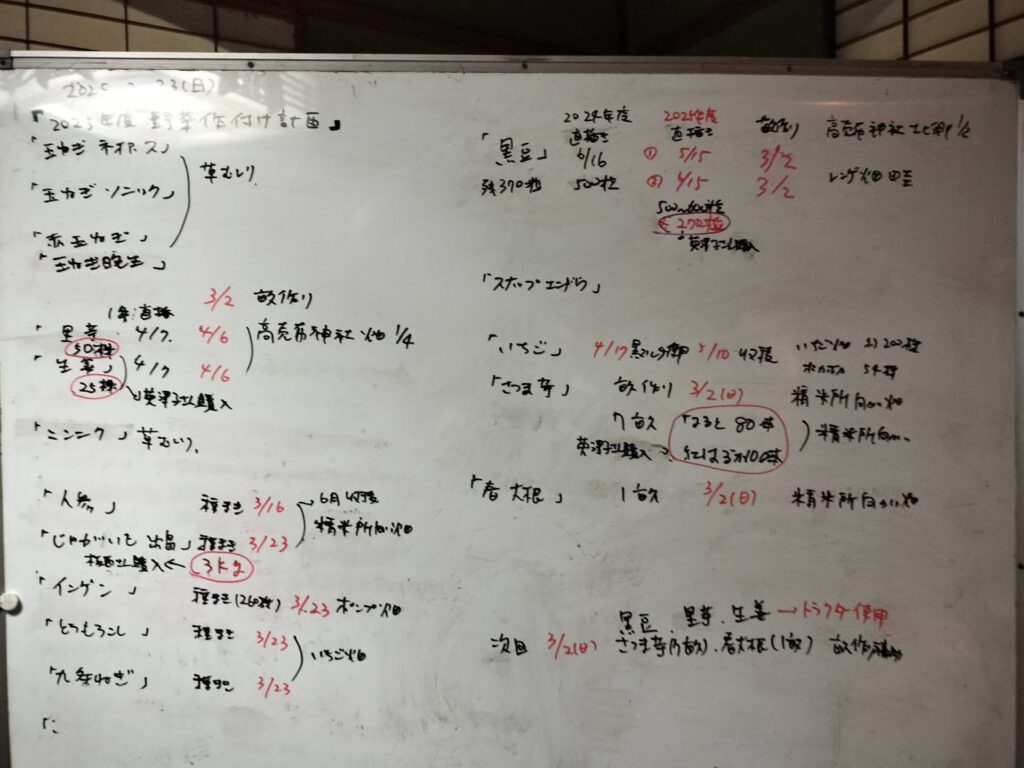 23(日)
「2025年度 野菜作付け計画」
「玉ねぎ ネオアース
「玉ねぎ ソニック」
草むしり
「赤玉ねぎ」
「玉ねぎ晩生」
3/2 畝作り
直播
「里芋 4/7. 4/6
50株
高売布神社 畑 1/4
「生姜」 4/7 4/6
25株 購入
「ニンニク」 草むしり.
「人参」 種まき 3/16
6月収穫
精米所向い畑
「じゃがいも 出島」 種まき 3/23
購入 ← 3kg
「インゲン」 種まき(260粒) 3/23 ポンプ畑
「とうもろこし」 種まき 3/23
いちご畑
「九条ねぎ」 種まき 3/23
「:
2024年度 2025年度
直播き 直播き 畝作り 高売布神社 1/2
「黒豆」 6/16 ① 5/15 3/2
残370粒 500粒 ② 4/15 3/2 レンゲ畑
500〜600粒
270粒
購入
「スナップエンドウ」
「いちご」 4/17 黒マルチ 5/10 収穫 いちご畑 200株
54株
「さつま芋」 畝作り 3/2(日) 精米所向い畑
7畝 「なると 80本
精米所向い
購入 → 紅はるか100本
「春大根」 1畝 3/2(日) 精米所向い畑
黒豆、里芋、生姜 → トラクター使用
次回 3/2(日) さつま芋(7畝)、春大根(1畝) 畝作り